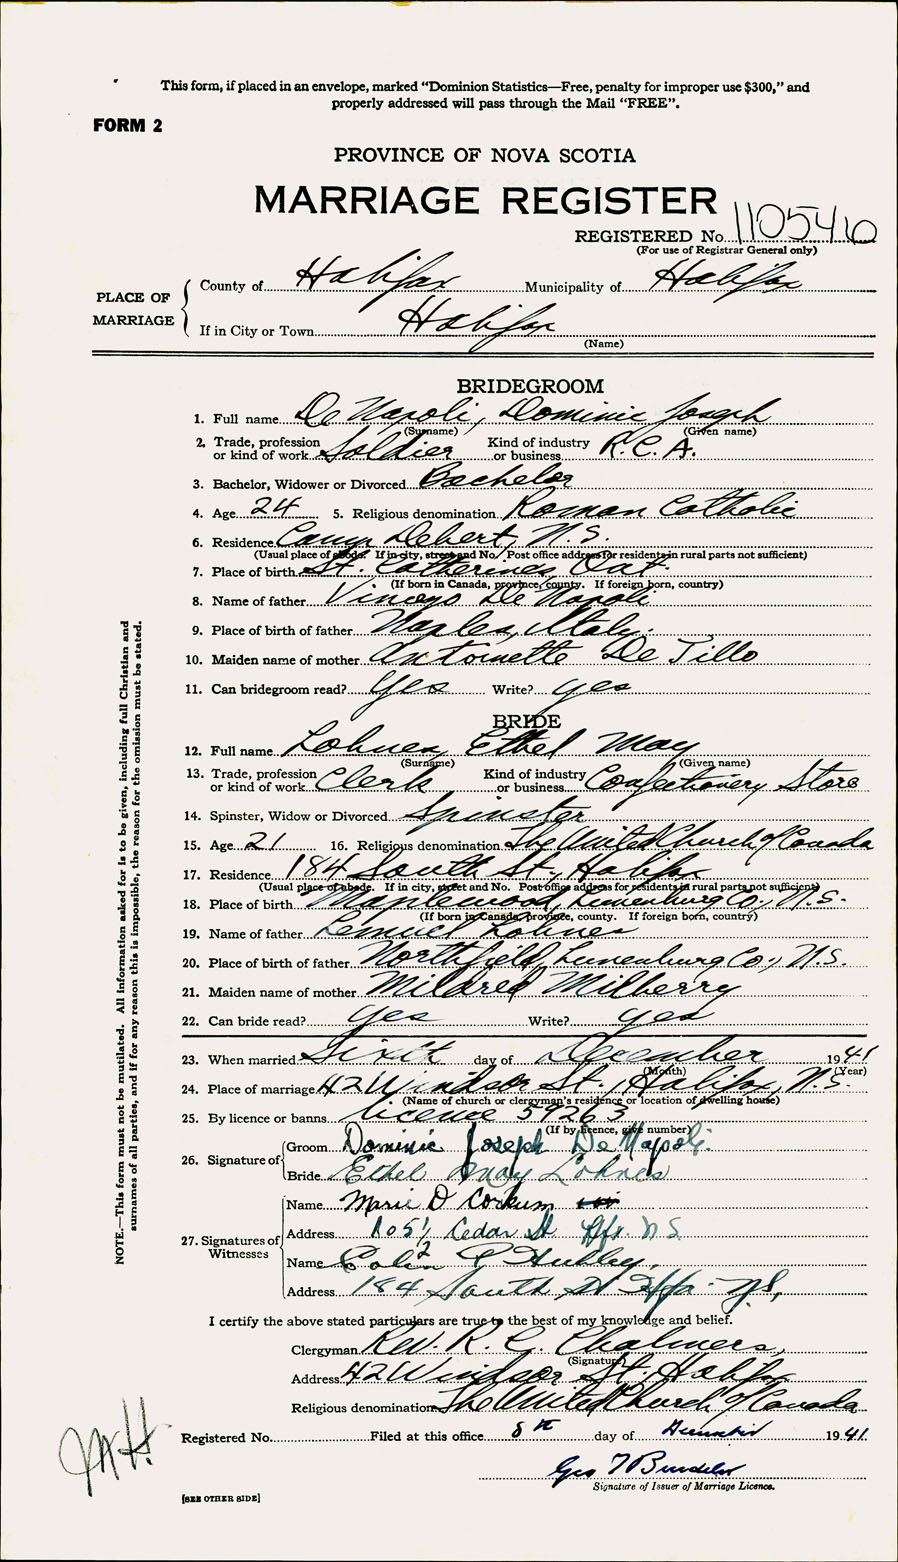 This form, if placed in an envelope, marked "Dominion Statistics—Free, penalty for improper use $300," and
properly addressed will pass through the Mail "FREE".
FORM 2
PROVINCE OF NOVA SCOTIA
MARRIAGE REGISTER
REGISTERED No. 110546
(For use of Registrar General only)
PLACE OF MARRIAGE
County of Halifax Municipality of Halifax
If in City or Town Halifax
(Name)
BRIDEGROOM
1. Full name De Napoli, Dominic Joseph
(Surname) (Given name)
2. Trade, profession or kind of work Soldier Kind of industry or business R.C.A.
3. Bachelor, Widower or Divorced Bachelor
4. Age 24 5. Religious denomination Roman Catholic
6. Residence Camp Debert, N.S.
(Usual place of abode. If in city, street and No. Post office address for residents in rural parts not sufficient)
7. Place of birth St. Catherines, Ont.
(If born in Canada, province, county. If foreign born, country)
8. Name of father De Napoli
9. Place of birth of father Naples, Italy.
10. Maiden name of mother Antoinette De Tillo
11. Can bridegroom read? Yes Write? yes
BRIDE
12. Full name Lohnes, Ethel May
(Surname) (Given name)
13. Trade, profession or kind of work Clerk Kind of industry or business Confectionery Store
14. Spinster, Widow or Divorced Spinster
15. Age 21 16. Religious denomination The United Church of Canada
17. Residence 184 South St., Halifax
(Usual place of abode. If in city, street and No. Post office address for residents in rural parts not sufficient)
18. Place of birth Maplewood, Lunenburg Co., N.S.
(If born in Canada, province, county. If foreign born, country)
19. Name of father Lemuel Lohnes
20. Place of birth of father Northfield, Lunenburg Co., N.S.
21. Maiden name of mother Mildred Milberry
22. Can bride read? yes Write? yes
23. When married Sixth day of December 1941
(Month) (Year)
24. Place of marriage 42 Windsor St., Halifax, N.S.
(Name of church or clergyman's residence or location of dwelling house)
25. By licence or banns licence 59263
(If by licence, give number)
26. Signature of
Groom Dominic Joseph De Napoli
Bride Ethel May Lohnes
27. Signatures of Witnesses
Name Marie D Corkum
Address Cedar St Hfx. N S
Name Colin Hubley
Address 184 South St Hfx N.S,
I certify the above stated particulars are true to the best of my knowledge and belief.
Clergyman Rev. R. G. Chalmers,
(Signature)
Address 42 Windsor St. Halifax
Religious denomination The United Church of Canada
Registered No. Filed at this office 8th day of December 1941
Geo T
Signature of Issuer of Marriage Licence.
[SEE OTHER SIDE]
NOTE.—This form must not be mutilated. All information asked for is to be given, including full Christian and
surnames of all parties, and if for any reason this is impossible, the reason for the omission must be stated.